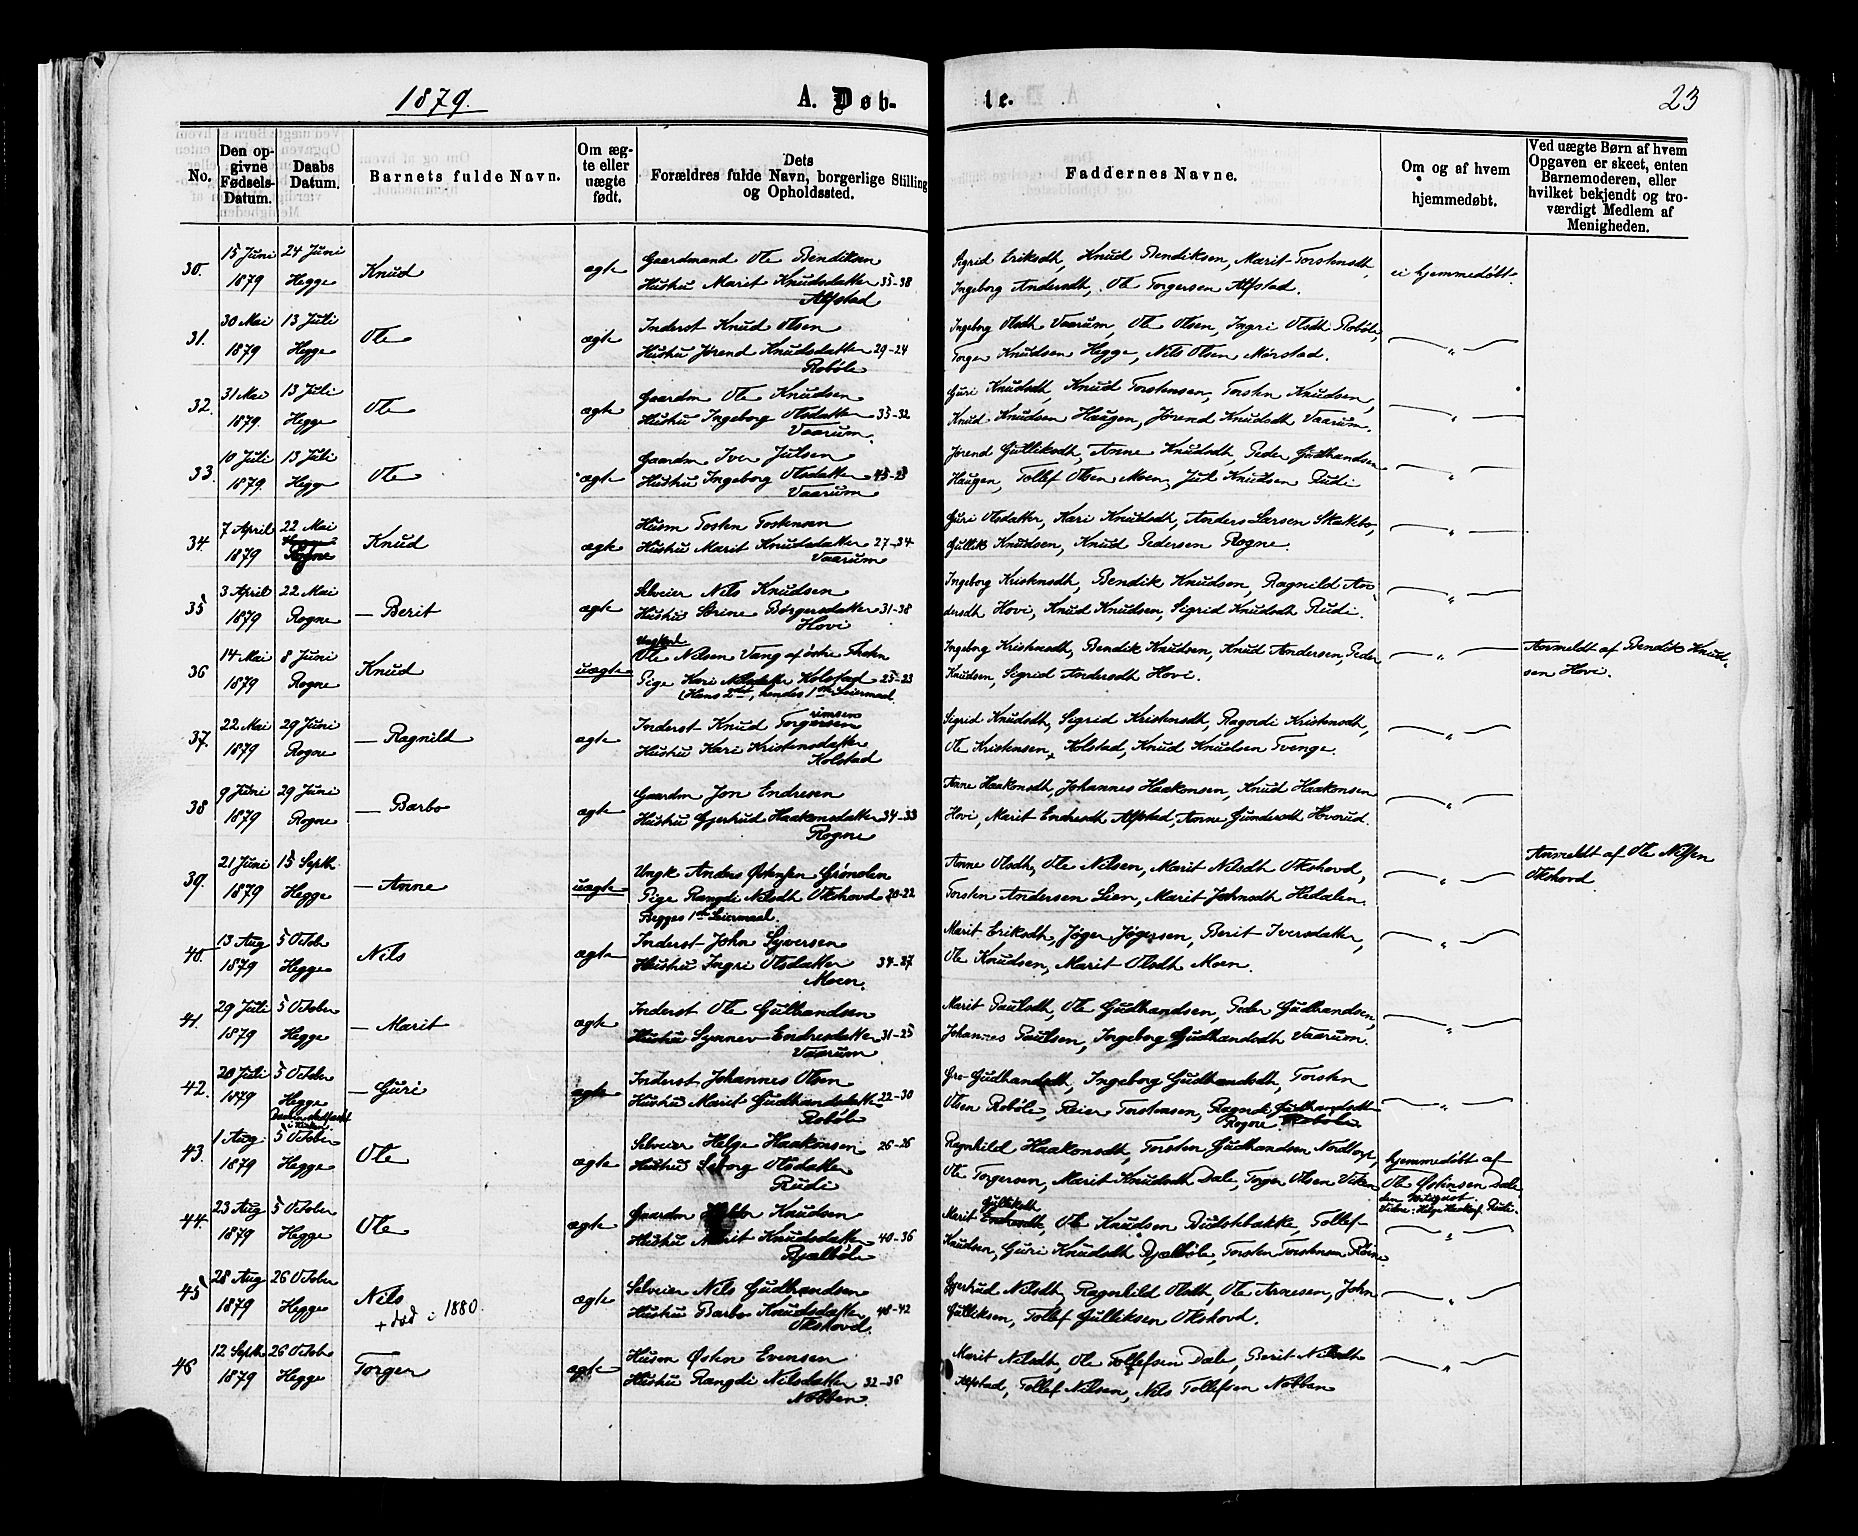 1879.
A. Døb-
te.
23
No.
Den op-
givne
Fødsels-
Datum.
Daabs
Datum.
Barnets fulde Navn.
Om æg-
te eller
uægte
født.
Dets
Forældres fulde Navn, borgerlige Stilling
og Opholdssted.
Faddernes Navne.
Om og af hvem
hjemmedøbt.
Ved uægte Børn af hvem
Opgaven er skeet, enten
Barnemoderen, eller
hvilket bekjendt og tro-
værdigt Medlem af
Menigheden.
30.
15 Juni
1879
24 Juni
Hegge
Knud
ægte
Gaardmand Ole Bendiksen
Hustru Marit Knudsdatter 35-38
Alfstad
Sigrid Eriksdt, Knud Bendiksen, Marit Torstensdt,
Ingeborg Andersdt, Ole Torgersen Alfstad.
ei hjemmedøbt.
31.
30 Mai
1879
13 Juli
Hegge
Ole
ægte
Inderst Knud Olsen
Hustru Jørend Knudsdatter 29-24
Robøle
Ingeborg Olsdt Vaarum, Ole Olsen, Ingri Olsdt Robøle,
Torger Knudsen Hegge, Nils Olsen Mørstad.
"
32.
31 Mai
1879.
13 Juli
Hegge
Ole
ægte
Gaardm Ole Knudsen
Hustru Ingeborg Olsdatter 33-32
Vaarum.
Guri Knudsdt, Knud Torstensen, Torsten Knudsen,
Knud Knudsen Haugen, Jørend Knudsdt Vaarum.
"
33.
10 Juli
1879.
13 Juli
Hegge
Ole
ægte
Gaardm Iver Julsen
Hustru Ingeborg Olsdatter 45-25
Vaarum
Jørend Gulliksdt, Anne Knudsdt, Peder Gudbrandsen
Haugen, Tollef Olsen Moen, Jul Knudsen Rudi
"
34.
7 April
1879
22 Mai
Hegge
Rogne
Knud
ægte
Husm Tosten Tostensen
Hustru Marit Knudsdatter 27-34
Vaarum
Guri Olsdatter, Kari Knudsdt, Anders Larsen Skattebo,
Gullik Knudsen, Knud Pedersen Rogne.
"
35
3 April
1879
22 Mai
Rogne
— Berit
ægte
Selveier Nils Knudsen
Hustru Strine Børgersdatter 31-38
Hovi
Ingeborg Kristensdt, Bendik Knudsen, Ragnild An-
dersdt Hovi, Knud Knudsen, Sigrid Knudsdt Rudi.
"
36
14 Mai
1879
8 Juni
Rogne
Knud
uægte
Ungkarl
Ole Nilsen Vang af østre Thoten
Pige Kari Nilsdatter Kolstad 25-23
(Hans 2det, hendes 1ste Leiermaal
Ingeborg Kristensdt, Bendik Knudsen, Knud Andersen, Peder
Knudsen, Sigrid Andersdt Hovi.
"
Anmeldt af Bendik Knud-
sen Hovi.
37.
22 Mai
1879
29 Juni
Rogne
— Ragnild
ægte
rimsen
Inderst Knud Torgersen
Hustru Kari Kristensdatter
Kolstad
Sigrid Knudsdt, Sigrid Kristensdt, Ragndi Kristensdt,
Ole Kristensen, Kolstad, Knud Knudsen Tvenge.
"
38
9 Juni
1879
29 Juni
Rogne
— Barbo
ægte
Gaardm Jon Endresen
Hustru Gjertrud Haakonsdatter 34-33
Rogne
Anne Haakonsdt, Johannes Haakonsen, Knud Haakonsen
Hovi, Marit Endresdt Alfstad, Anne Gundersdt Hovrud.
"
39.
21 Juni
1879
15 Septb.
Hegge
— Anne
uægte
Ungk Anders Østensen Grønolen
Pige Rangdi Nilsdt Okshovd 20-22
Begges 1ste Leiermaal.
Anne Olsdt, Ole Nilsen, Marit Nilsdt Okshovd,
Torsten Andersen Lien, Marit Johnsdt Hedalen.
"
Anmeldt af Ole Nilsen
Okshovd.
40.
13 Aug
1879
5 Octob
Hegge
Nils
ægte
Inderst John Syversen
Hustru Ingri Olsdatter 34-27
Moen.
Marit Eriksdt, Jøger Jøgersen, Berit Iversdatter,
Ole Knudsen, Marit Olsdt Moen.
"
41.
29 Juli
1879
5 October
Hegge
— Marit
ægte
Inderst Ole Gulbrandsen
Hustru Synnev Endresdatter 31-25
Vaarum
Marit Paulsdt, Ole Gudbrandsen, Peder Gudbrandsen,
Johannes Paulsen, Ingeborg Gudbrandsdt Vaarum.
"
42.
20 Juli
1879
5 October
Hegge
— Guri
ægte
Inderst Johannes Olsen
Hustru Marit Gudbrandsdatter 22-30
Robøle
Gro Gudbrandsdt, Ingeborg Gudbrandsdt, Torsten
Olsen Robøle, Reier Torstensen, Ragndi Gudbrandsdt
Rogne Robøle.
"
43.
1 Aug
1879
5 October
Hegge
Ole
ægte
Selveier Helge Haakonsen 26-26
Hustru Siborg Olsdatter
Rudi
Ragnhild Haakonsdt, Torsten Gudbrandsen Nordtorp,
Ole Torgersen, Marit Knudsdt Dale, Torger Olsen Viken
hjemmedøbt af
Ole Østensen Dale
44.
23 Aug
1879
5 October
Hegge
Ole
ægte
Gaardm Knudsen
Hustru Marit Knudsdatter 40-36
Bjælbøle
Gulliksdt
Marit Endresdt, Ole Knudsen Bulstebakke, Tollef
Knudsen, Guri Knudsdt Bjælbøle, Torsten Torstensen Røine
"
45
28 Aug
1879
26 October
Hegge
Nils
+ død i 1880.
ægte
Selveier Nils Gudbrandsen
Hustru Barbo Knudsdatter 48-42
Okshovd.
Gjertrud Nilsdt, Ragnhild Olsdt, Ole Arnesen, John
Gulliksen, Tollef Gulliksen Okshovd.
"
46
12 Septb
1879
26 Octob
Hegge
Torger
ægte
Husm Østen Evensen
Hustru Rangdi Nilsdatter 32-36
Nobben.
Marit Nilsdt, Ole Tollefsen Dale, Berit Nilsdt
Alfstad, Tollef Nilsen, Nils Tollefsen Nobben
"